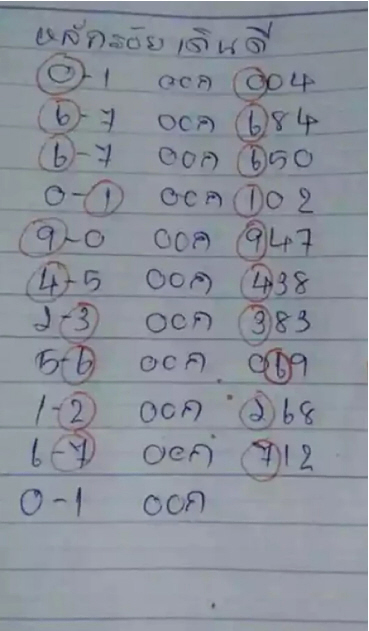 หลักร้อย เดินดี
0-1 ออก 004
6-7 ออก 684
6-7 ออก 650
0-1 ออก 102
9-0 ออก 947
4-5 ออก 438
2-3 ออก 383
5-6 ออก 069
1-2 ออก 268
6-7 ออก 712
0-1 ออก